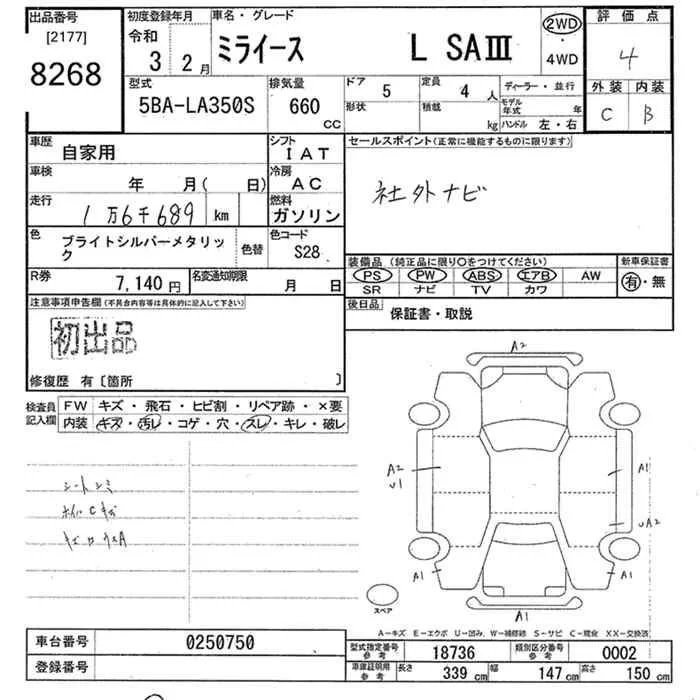 出品番号
[2177]
8268
初度登録年月
令和
3 2月
車名・グレード
ミライース L SAⅢ
2WD
・
4WD
評価点
4
外装 内装
C B
型式
5BA-LA350S
排気量
660
CC
ドア 5
形状
定員 4 人
積載 kg
ディーラー・並行
モデル年式 年
ハンドル 左・右
車歴
自家用
シフト
IAT
セールスポイント(正常に機能するものに限ります)
社外ナビ
車検
年 月( 日)
冷房
AC
走行
1万6千689 km
燃料
ガソリン
色
ブライトシルバーメタリック
色替
色コード
S28
装備品 (純正品に限り○をつけてください)
PS PW ABS エアB AW
SR ナビ TV カワ
新車保証書
有・無
R券
7,140円
名変通知期限
月 日
後日品
保証書・取説
注意事項申告欄(不具合内容等は具体的に記入して下さい)
初出品
修復歴 有〔箇所 〕
検査員記入欄
FW キズ・飛石・ヒビ割・リペア跡・×要
内装 キズ・汚レ・コゲ・穴・スレ・キレ・破レ
シートシミ
A2
A2
U1
A1
UA2
A1
A1
A1
スペア
A-キズ E-エクボ U-凹み W-補修跡 S-サビ C-腐食 XX-交換済
車台番号
0250750
登録番号
型式指定番号
参考
18736
類別区分番号
参考
0002
車庫証明用
参考
長さ 339 cm
幅 147 cm
高さ 150 cm